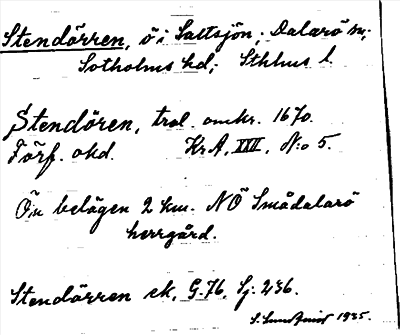 Stendörren, ö i Saltsjön; Dalarö sn;
Sotholms hd; Sthlms l.
Stendören, trol. omkr. 1670.
Förf. okd. Kr.A. XXII, N:o 5.
Ön belägen 2 km. NÖ Smådalarö
herrgård.
Stendörren ek, G. 76, Sj: 236.
S. Lundqvist 1935.